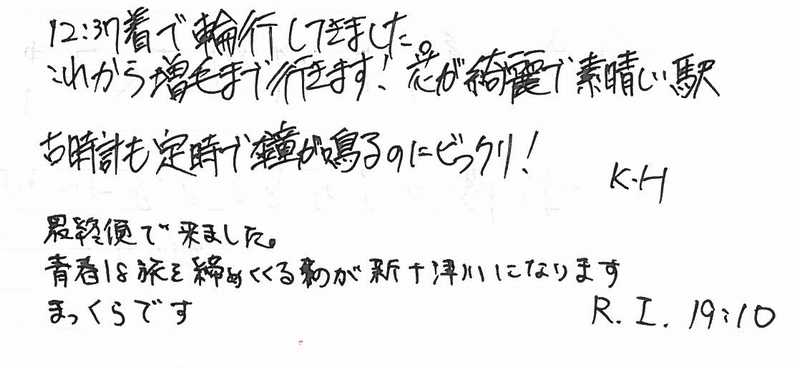 12:37着で輪行してきました。
これから増毛まで行きます! 花が綺麗で素晴しい駅
古時計も定時で鐘が鳴るのにビックリ!
K.H
最終便で来ました。
青春18旅を締めくくるのが新十津川になります
まっくらです
R. I. 19:10